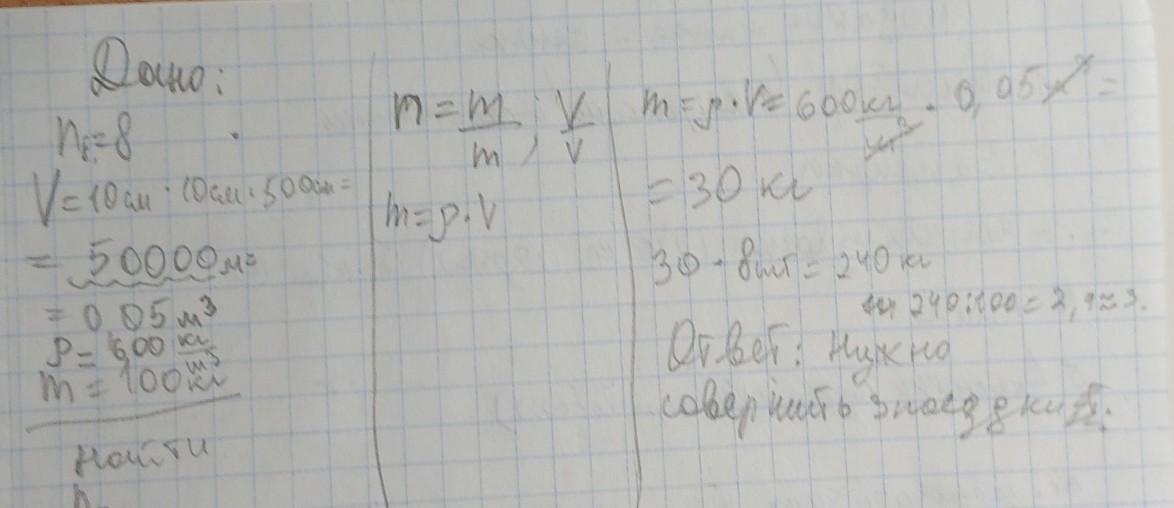 Дано:
n₈=8
V=10см·10см·500см=
= 50000м=
= 0,05 м³
ρ= 600 кг/м³
m = 100кг
найти
n = m/m ; V/V
m=ρ·V
m=ρ·V= 600 кг/м³ · 0,05 м³ =
= 30 кг
30 · 8шт = 240 кг
240:100=2,4≈3.
Ответ: нужно
совершить 3 поездки